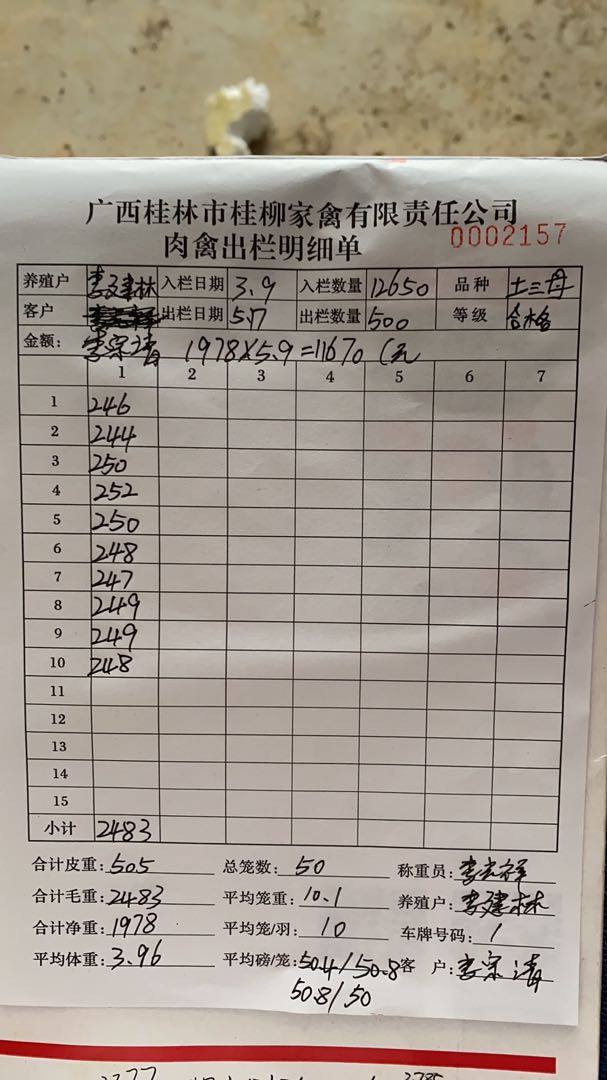 广西桂林市桂柳家禽有限责任公司
肉禽出栏明细单 0002157
养殖户 李建林 入栏日期 3.9 入栏数量 12650 品种 土三丹
客户 出栏日期 5.17 出栏数量 500 等级 合格
金额: 李宗清 1978×5.9=11670(元
1 2 3 4 5 6 7
1 246
2 244
3 250
4 252
5 250
6 248
7 247
8 249
9 249
10 248
11
12
13
14
15
小计 2483
合计皮重:505 总笼数:50 称重员:李宏祥
合计毛重:2483 平均笼重:10.1 养殖户:李建林
合计净重:1978 平均笼/羽:10 车牌号码:1
平均体重:3.96 平均磅/笼:50.4/50.8 客户:李宗清
50.8/50